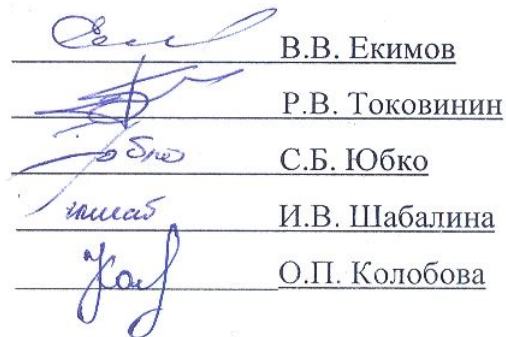 В.В. Екимов
Р.В. Токовинин
С.Б. Юбко
И.В. Шабалина
О.П. Колобова